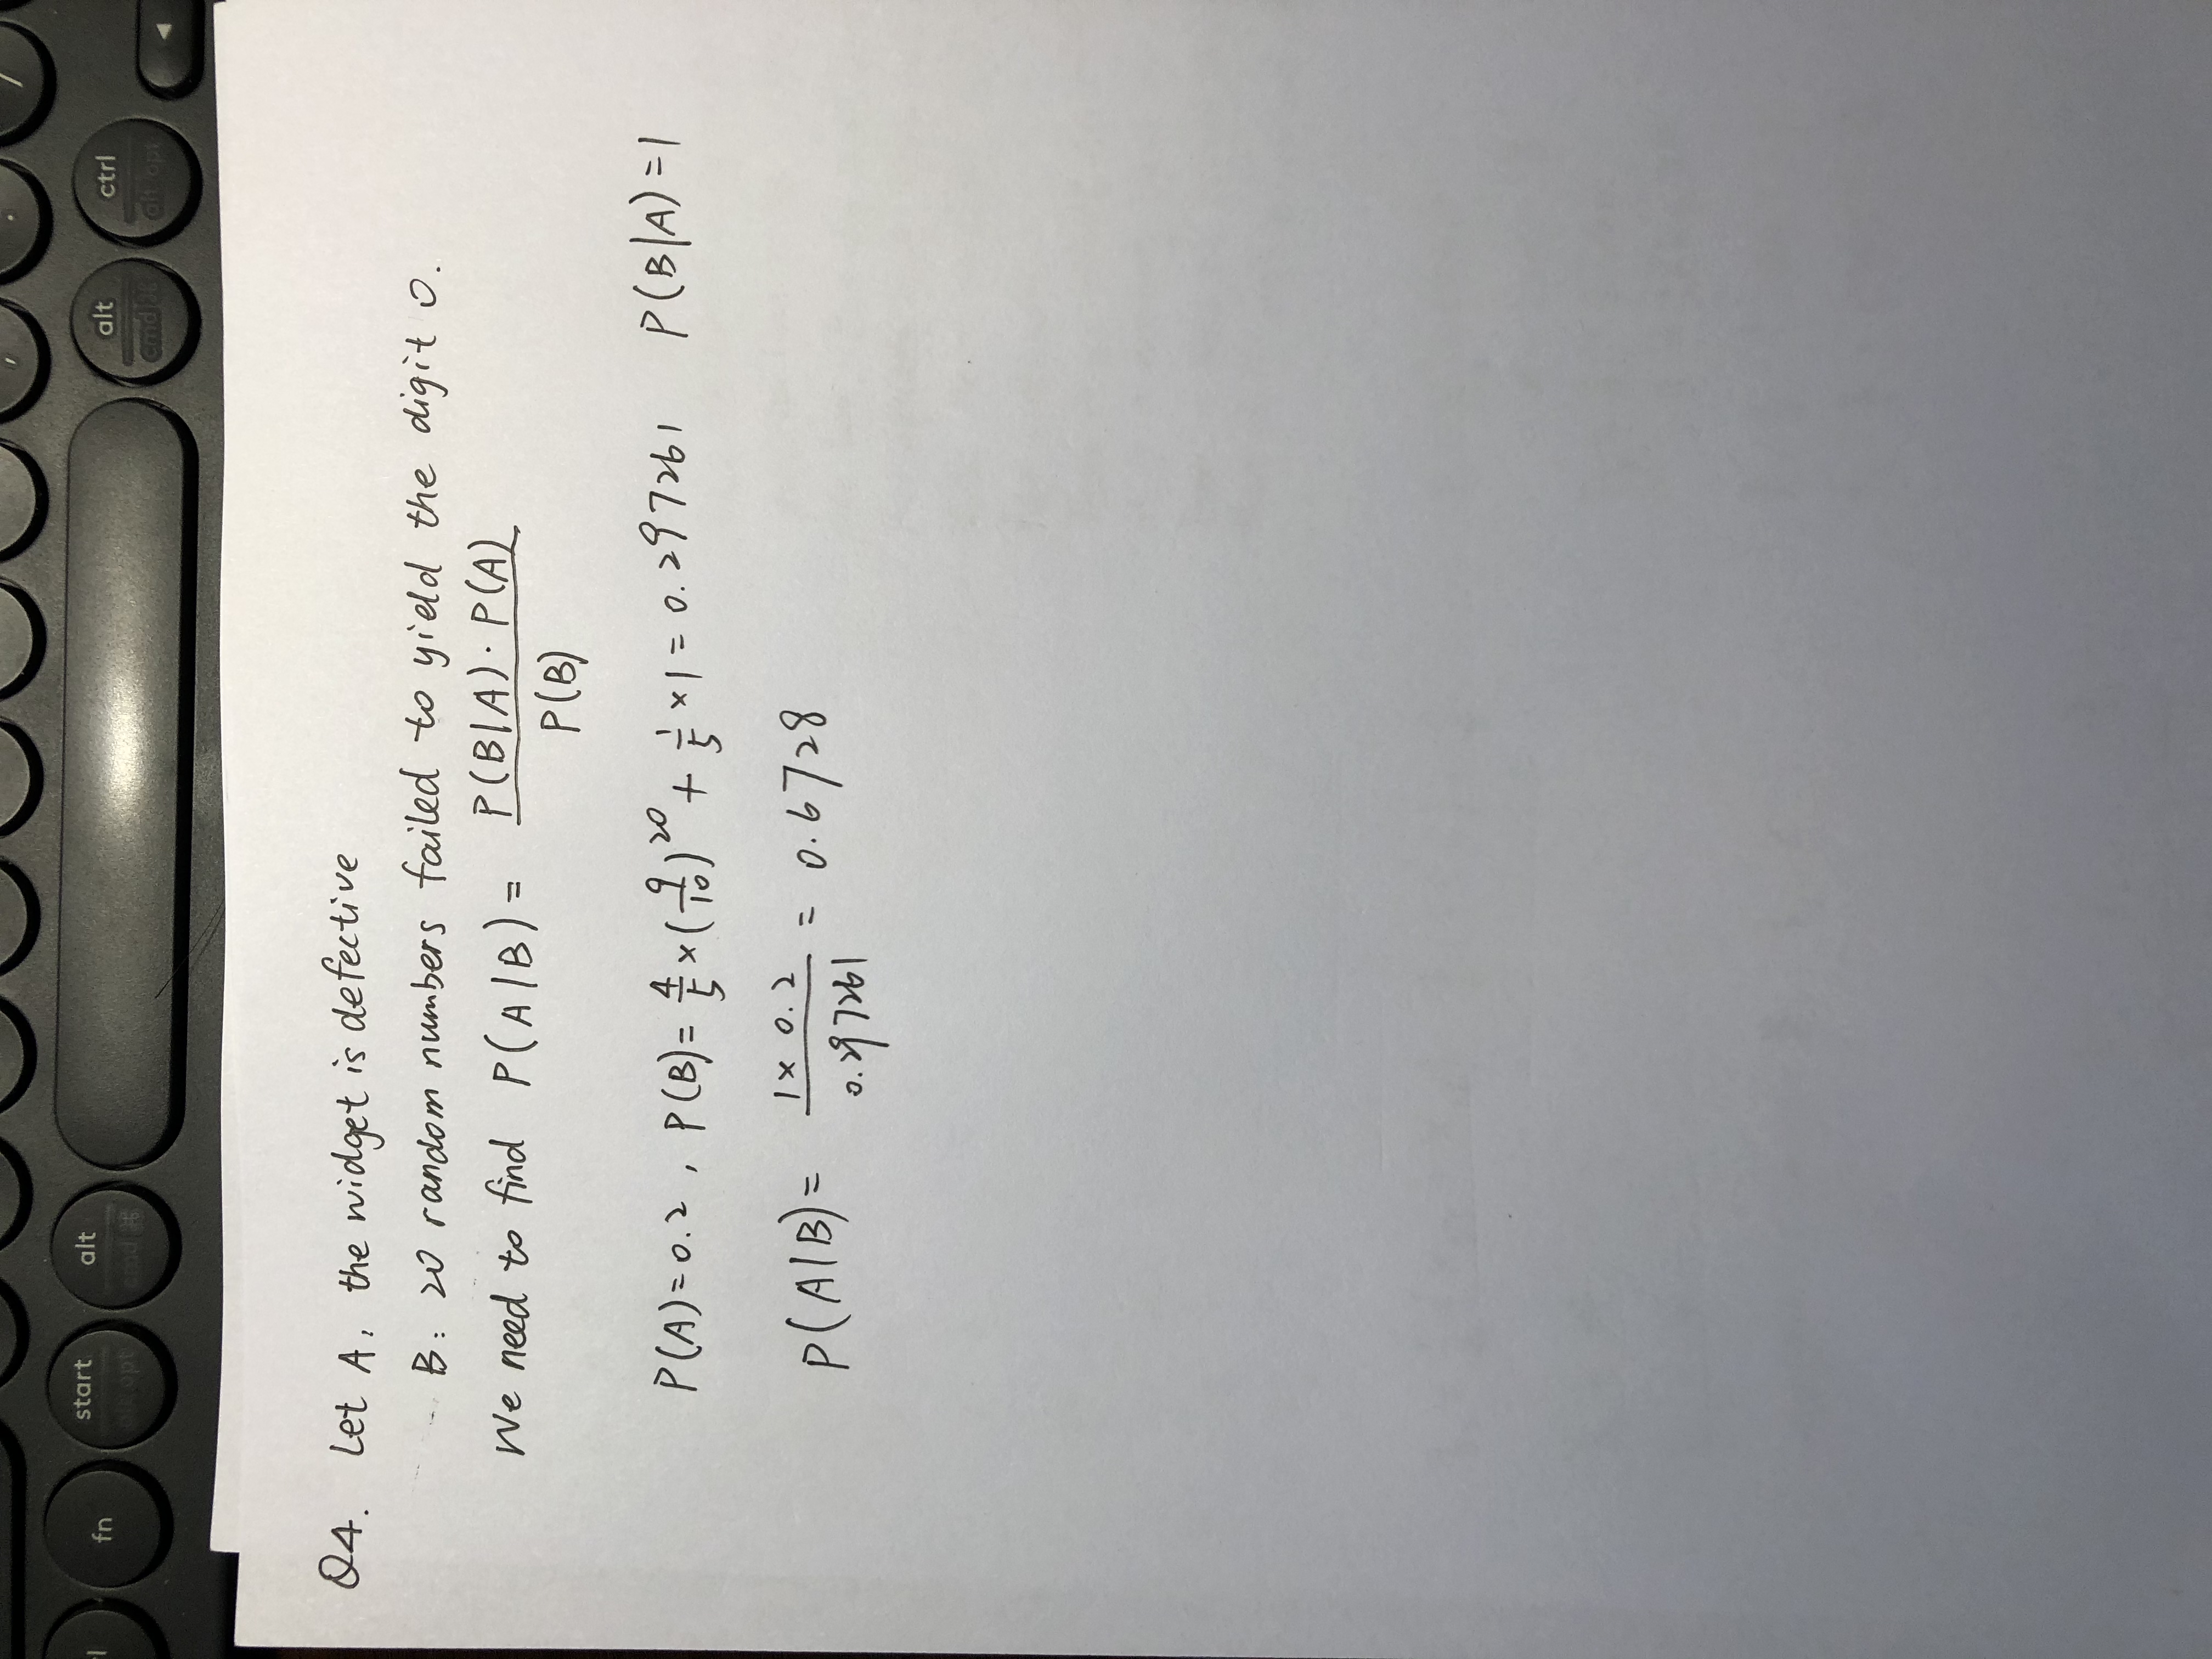 fn start alt alt ctrl
alt opt cmd ⌘ cmd ⌘ alt opt
Q4. Let A, the widget is defective
B: 20 random numbers failed to yield the digit 0.
We need to find P(A|B) = P(B|A)·P(A) / P(B)
P(A)=0.2, P(B)= 4/5 × (9/10)^20 + 1/5 × 1 = 0.297261 P(B|A)=1
P(A|B)= 1×0.2 / 0.297261 = 0.6728